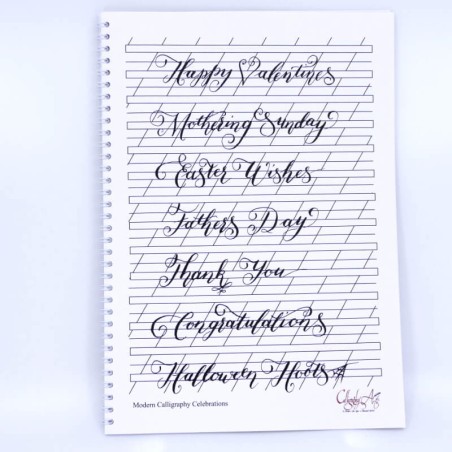 Happy Valentines
Mothering Sunday
Easter Wishes
Fathers Day
Thank You
Congratulations
Halloween Hoots
Modern Calligraphy Celebrations